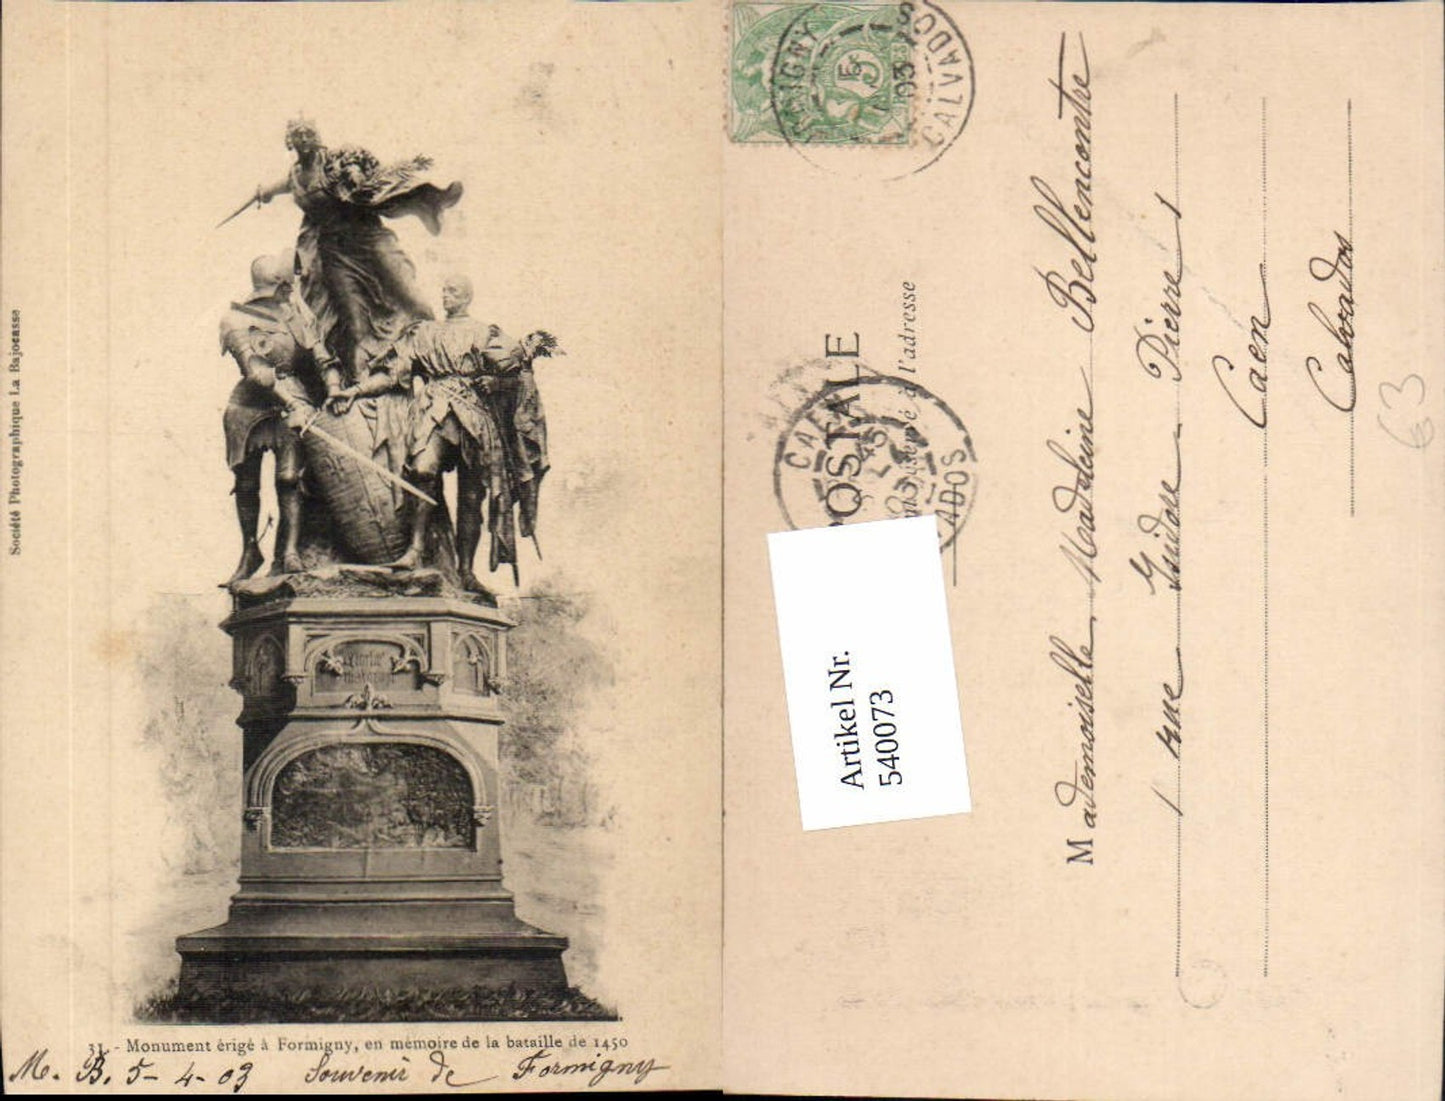 Société Photographique La Bajocasse
31. - Monument érigé à Formigny, en mémoire de la bataille de 1450
M. B. 5-4-03 Souvenir de Formigny
5
03
CALVADOS
POSTALE
à l'adresse
CAEN
Artikel Nr.
540073
Mademoiselle Madeleine Bellencontre
1 rue Guidon Pierre
Caen
Calvados
63